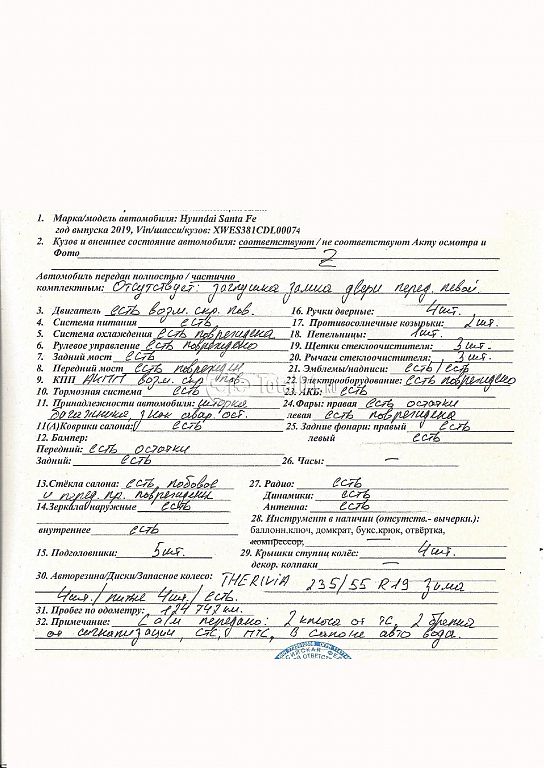 1. Марка/модель автомобиля: Hyundai Santa Fe
год выпуска 2019, Vin/шасси/кузов: XWES381CDL00074
2. Кузов и внешнее состояние автомобиля: соответствуют / не соответствуют Акту осмотра и
Фото 2
Автомобиль передан полностью / частично
комплектным: Отсутствует: заглушка замка двери перед. левой.
3. Двигатель есть возм. скр. пов.
4. Система питания есть
5. Система охлаждения есть повреждена
6. Рулевое управление есть повреждено
7. Задний мост есть
8. Передний мост есть поврежден
9. КПП АКПП возм. скр. пов
10. Тормозная система есть
11. Принадлежности автомобиля: шторка
багажника, знак авар. ост.
11(А)Коврики салона: есть
12. Бампер:
Передний: есть остатки
Задний: есть
13.Стёкла салона: есть, лобовое
и перед. пр. повреждены
14.Зеркала/наружные есть
внутреннее есть
15. Подголовники: 5шт.
16. Ручки дверные: 4шт.
17. Противосолнечные козырьки: 2шт.
18. Пепельницы: 1шт.
19. Щетки стеклоочистителя: 3шт.
20. Рычаги стеклоочистителя: 3шт.
21. Эмблемы/надписи: есть/есть
22. Электрооборудование: есть повреждено
23. АКБ: есть
24.Фары: правая есть остатки
левая есть повреждена
25. Задние фонари: правый есть
левый есть
26. Часы: —
27. Радио: есть
Динамики: есть
Антенна: есть
28. Инструмент в наличии (отсутств.- вычеркн.):
баллонн.ключ, домкрат, букс.крюк, отвёртка,
компрессор, —
29. Крышки ступиц колёс: 4шт.
декор. колпаки —
30. Авторезина/Диски/Запасное колесо: THERIVIA 235/55 R19 зима
4шт./литые 4шт./есть.
31. Пробег по одометру: 124742 км.
32. Примечание: С а/м передано: 2 ключа от ТС, 2 брелка
от сигнализации, СТС, ПТС, В салоне авто вода.